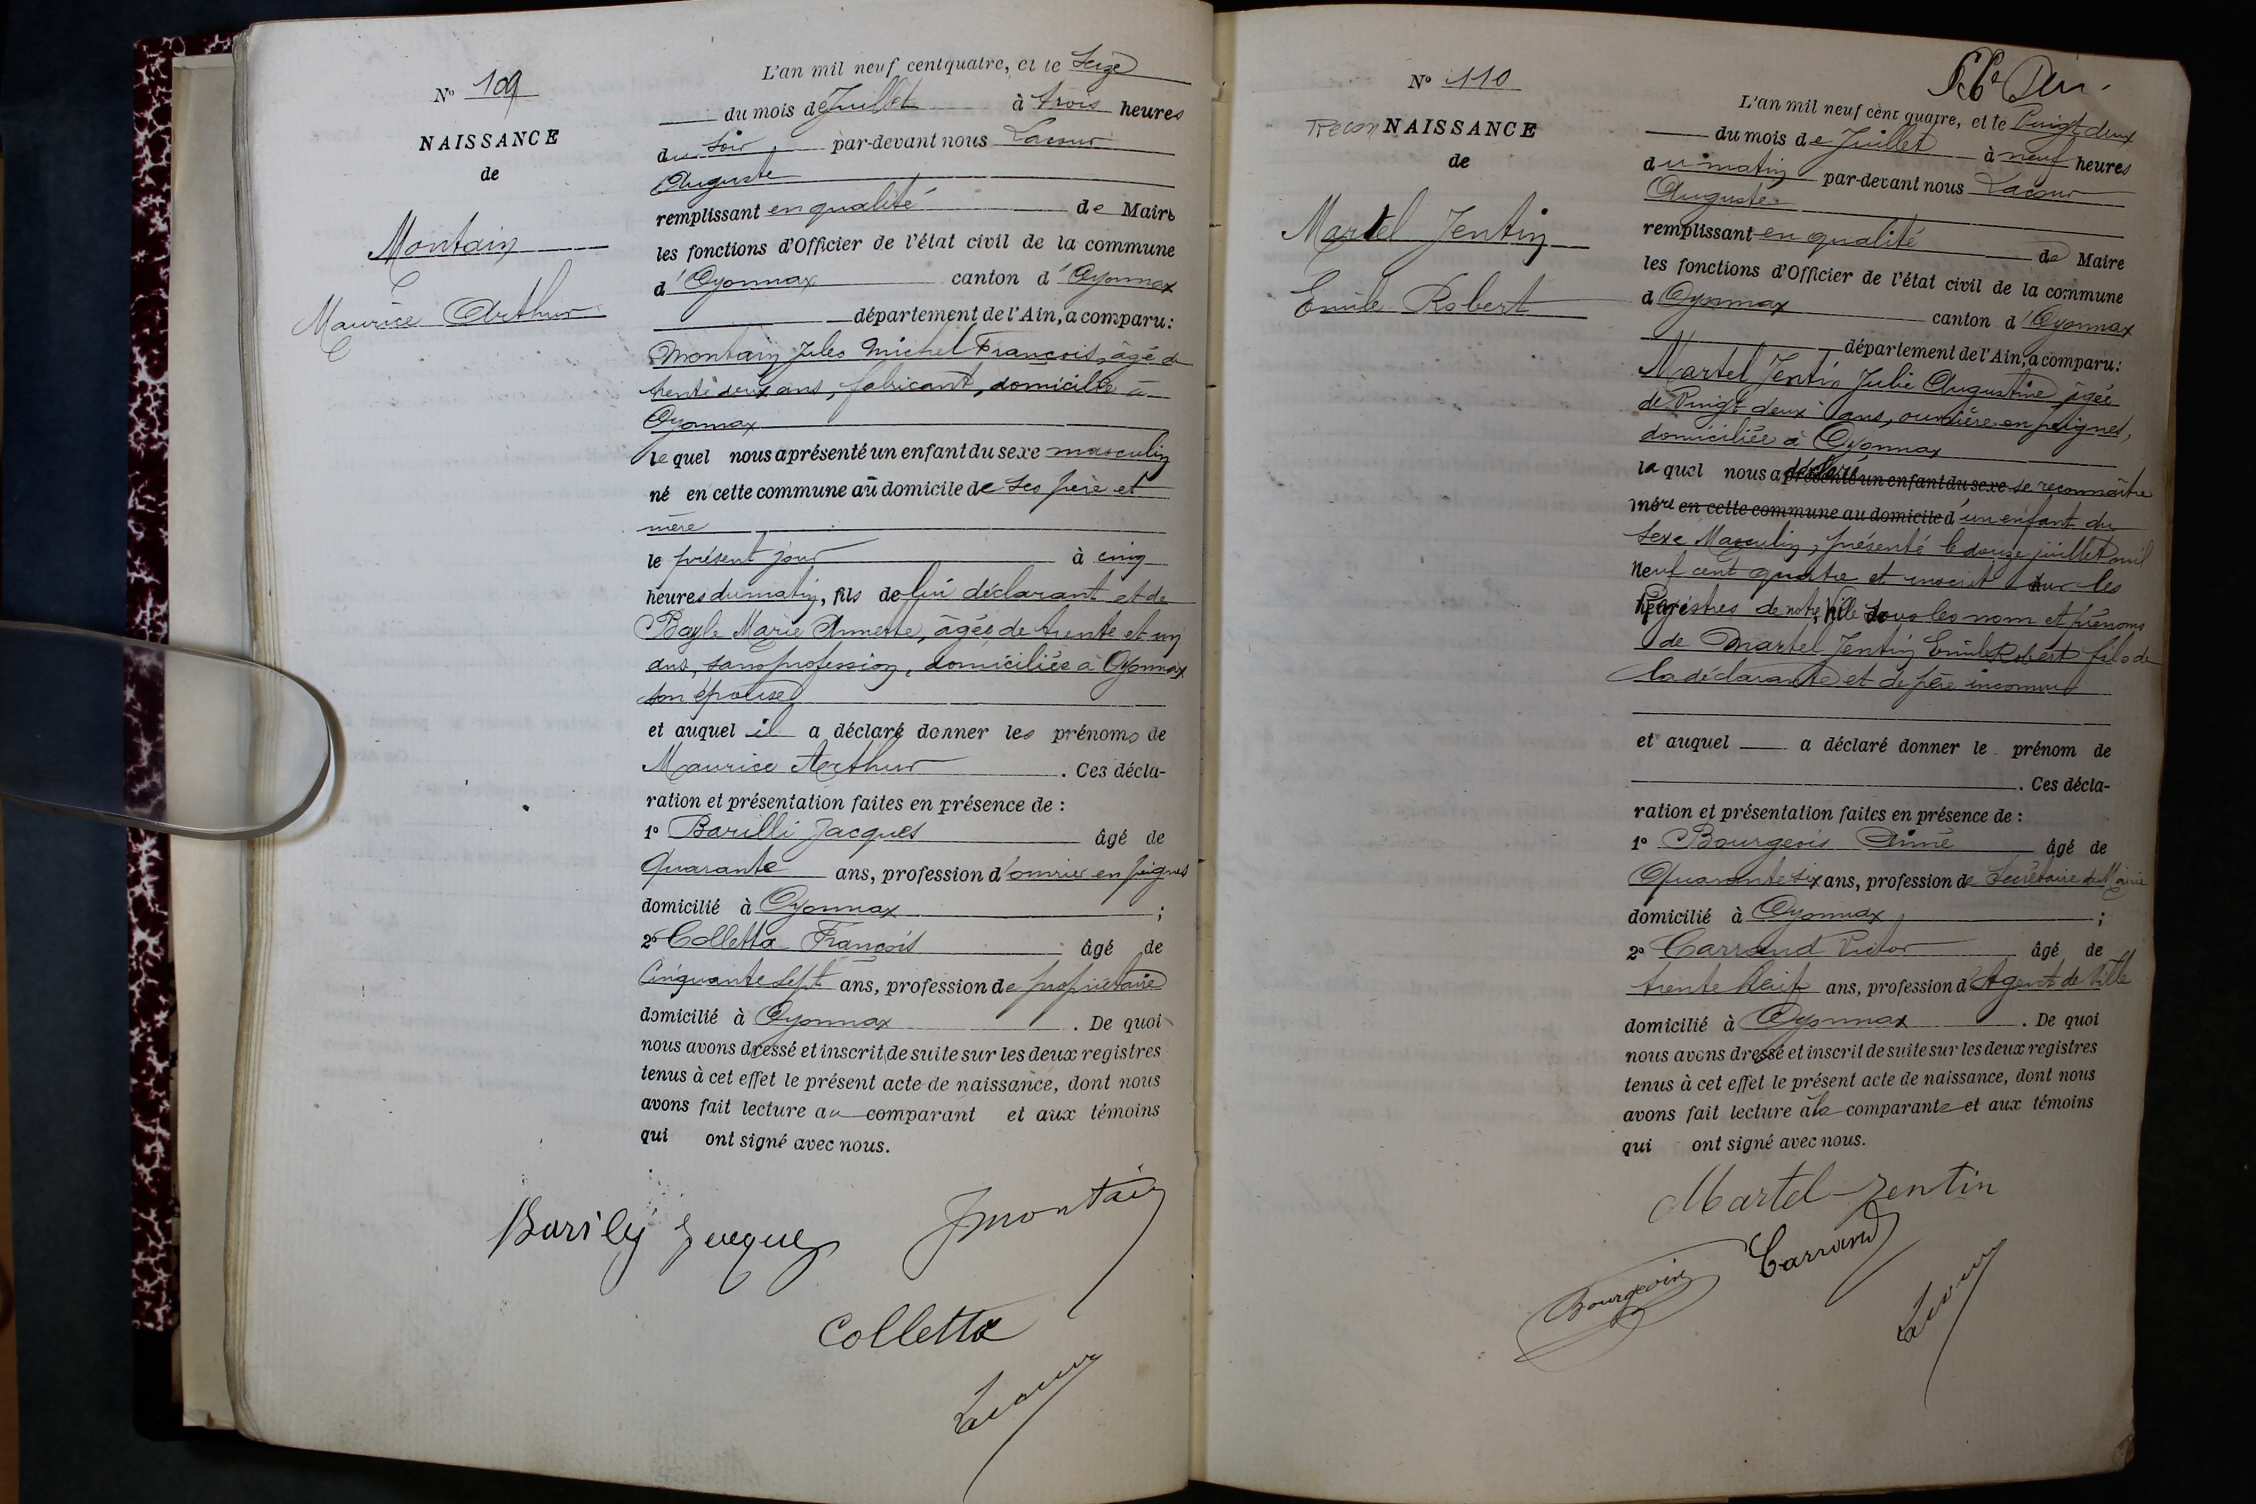 N° 109
NAISSANCE
de
Montain
Maurice Arthur
L'an mil neuf cent quatre, et le Seize
du mois de Juillet à trois heures
du soir par-devant nous Lacour
Auguste
remplissant en qualité de Maire
les fonctions d'Officier de l'état civil de la commune
d'Oyonnax canton d'Oyonnax
département de l'Ain, a comparu :
Montain Jules Michel François, âgé de
trente deux ans, fabricant, domicilié à
Oyonnax
lequel nous a présenté un enfant du sexe masculin
né en cette commune au domicile de ses père et
mère
le présent jour à cinq
heures du matin, fils de lui déclarant et de
Bayle Marie Annette, âgée de trente et un
ans, sans profession, domiciliée à Oyonnax
son épouse
et auquel il a déclaré donner les prénoms de
Maurice Arthur . Ces décla-
ration et présentation faites en présence de :
1° Barilli Jacques âgé de
Quarante ans, profession d'ouvrier en peignes
domicilié à Oyonnax ;
2° Colletta François âgé de
Cinquante sept ans, profession de propriétaire
domicilié à Oyonnax . De quoi
nous avons dressé et inscrit de suite sur les deux registres
tenus à cet effet le présent acte de naissance, dont nous
avons fait lecture au comparant et aux témoins
qui ont signé avec nous.
Barily Jacques JMontain
Colletta
Lacour
N° 110
Recon NAISSANCE
de
Martel Jentin
Emile Robert
L'an mil neuf cent quatre, et le Vingt deux
du mois de Juillet à neuf heures
du matin par-devant nous Lacour
Auguste
remplissant en qualité de Maire
les fonctions d'Officier de l'état civil de la commune
d Oyonnax canton d'Oyonnax
département de l'Ain, a comparu :
Martel Jentin Julie Augustine, âgée
de Vingt deux ans, ouvrière en peignes,
domiciliée à Oyonnax
laquel nous a déclaré présenté un enfant du sexe se reconnaître
mère en cette commune au domicile d'un enfant du
sexe Masculin, présenté le douze juillet mil
neuf cent quatre et inscrit sur les
Registres de notre Ville sous les nom et prénoms
de Martel Jentin Emile Robert fils de
la déclarante et de père inconnu
et auquel a déclaré donner le prénom de
. Ces décla-
ration et présentation faites en présence de :
1° Bourgeois Aimé âgé de
Quarante six ans, profession de Secrétaire de Mairie
domicilié à Oyonnax ;
2° Carrand Victor âgé de
trente neuf ans, profession d'Agent de Ville
domicilié à Oyonnax . De quoi
nous avons dressé et inscrit de suite sur les deux registres
tenus à cet effet le présent acte de naissance, dont nous
avons fait lecture à la comparante et aux témoins
qui ont signé avec nous.
Martel-Jentin
Bourgeois Carrand
Lacour